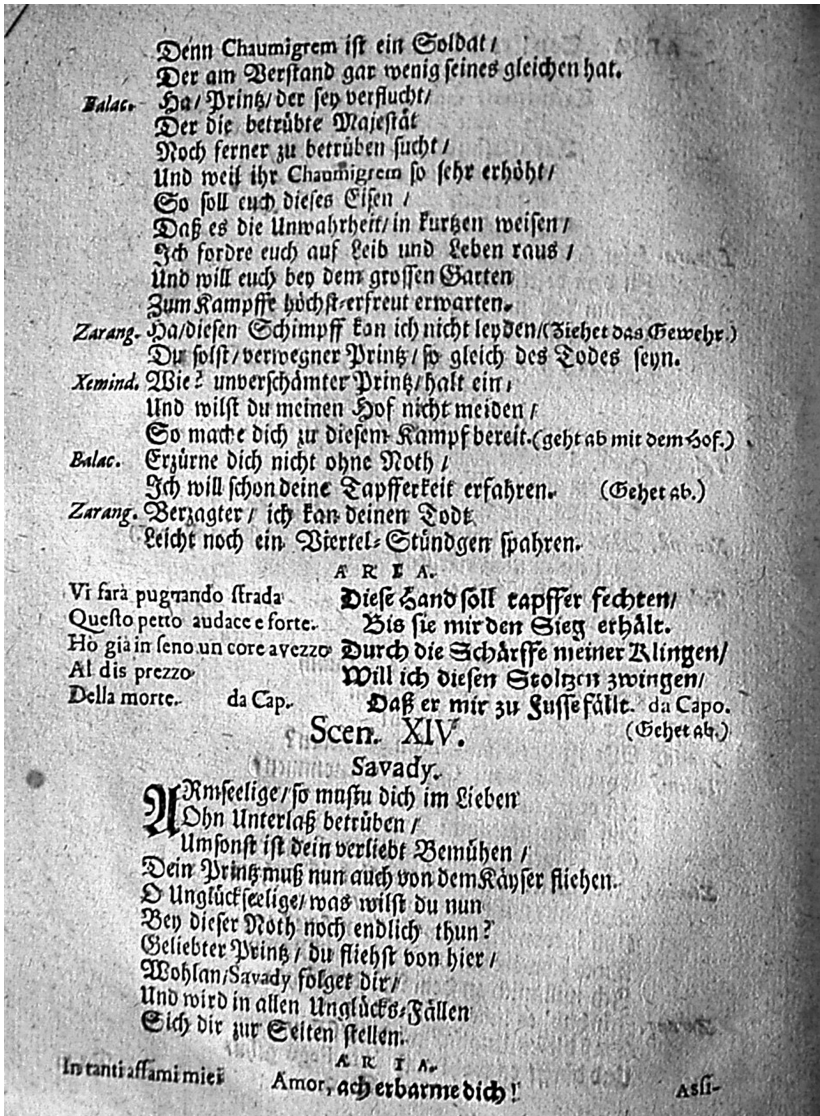 Denn Chaumigrem ist ein Soldat/
Der am Verstand gar wenig seines gleichen hat.
Balac. Ha/ Printz/ der sey verflucht/
Der die betrübte Majestät
Noch ferner zu betrüben sucht/
Und weil ihr Chaumigrem so sehr erhöht/
So soll euch dieses Eisen /
Daß es die Unwahrheit/ in kurtzen weisen/
Ich fordre euch auf Leib und Leben raus /
Und will euch bey dem grossen Garten
Zum Kampffe höchst-erfreut erwarten.
Zarang. Ha/diesen Schimpff kan ich nicht leyden/(Ziehet das Gewehr.)
Du solst/ verwegner Printz/ so gleich des Todes seyn.
Xemind. Wie? unverschämter Printz/ halt ein/
Und wilst du meinen Hof nicht meiden /
So mache dich zu diesem Kampf bereit.(geht ab mit dem Hof.)
Balac. Erzürne dich nicht ohne Noth /
Ich will schon deine Tapfferkeit erfahren. (Gehet ab.)
Zarang. Verzagter/ ich kan deinen Todt
Leicht noch ein Viertel-Stündgen spahren.
ARIA.
Vi farà pugnando strada Diese Hand soll tapffer fechten/
Questo petto audace e forte. Bis sie mir den Sieg erhält.
Hò già in seno un core avezzo Durch die Schärffe meiner Klingen/
Al dis prezzo Will ich diesen Stoltzen zwingen/
Della morte. da Cap. Daß er mir zu Fusse fällt. da Capo.
Scen. XIV. (Gehet ab.)
Savady.
ARmseelige/ so mustu dich im Lieben
Ohn Unterlaß betrüben /
Umsonst ist dein verliebt Bemühen /
Dein Printz muß nun auch von dem Käyser fliehen.
O Unglückseelige/ was wilst du nun
Bey dieser Noth noch endlich thun?
Geliebter Printz/ du fliehst von hier /
Wohlan/Savady folget dir/
Und wird in allen Unglücks-Fällen
Sich dir zur Seiten stellen.
ARIA.
In tanti affami miei Amor, ach erbarme dich! Assi-